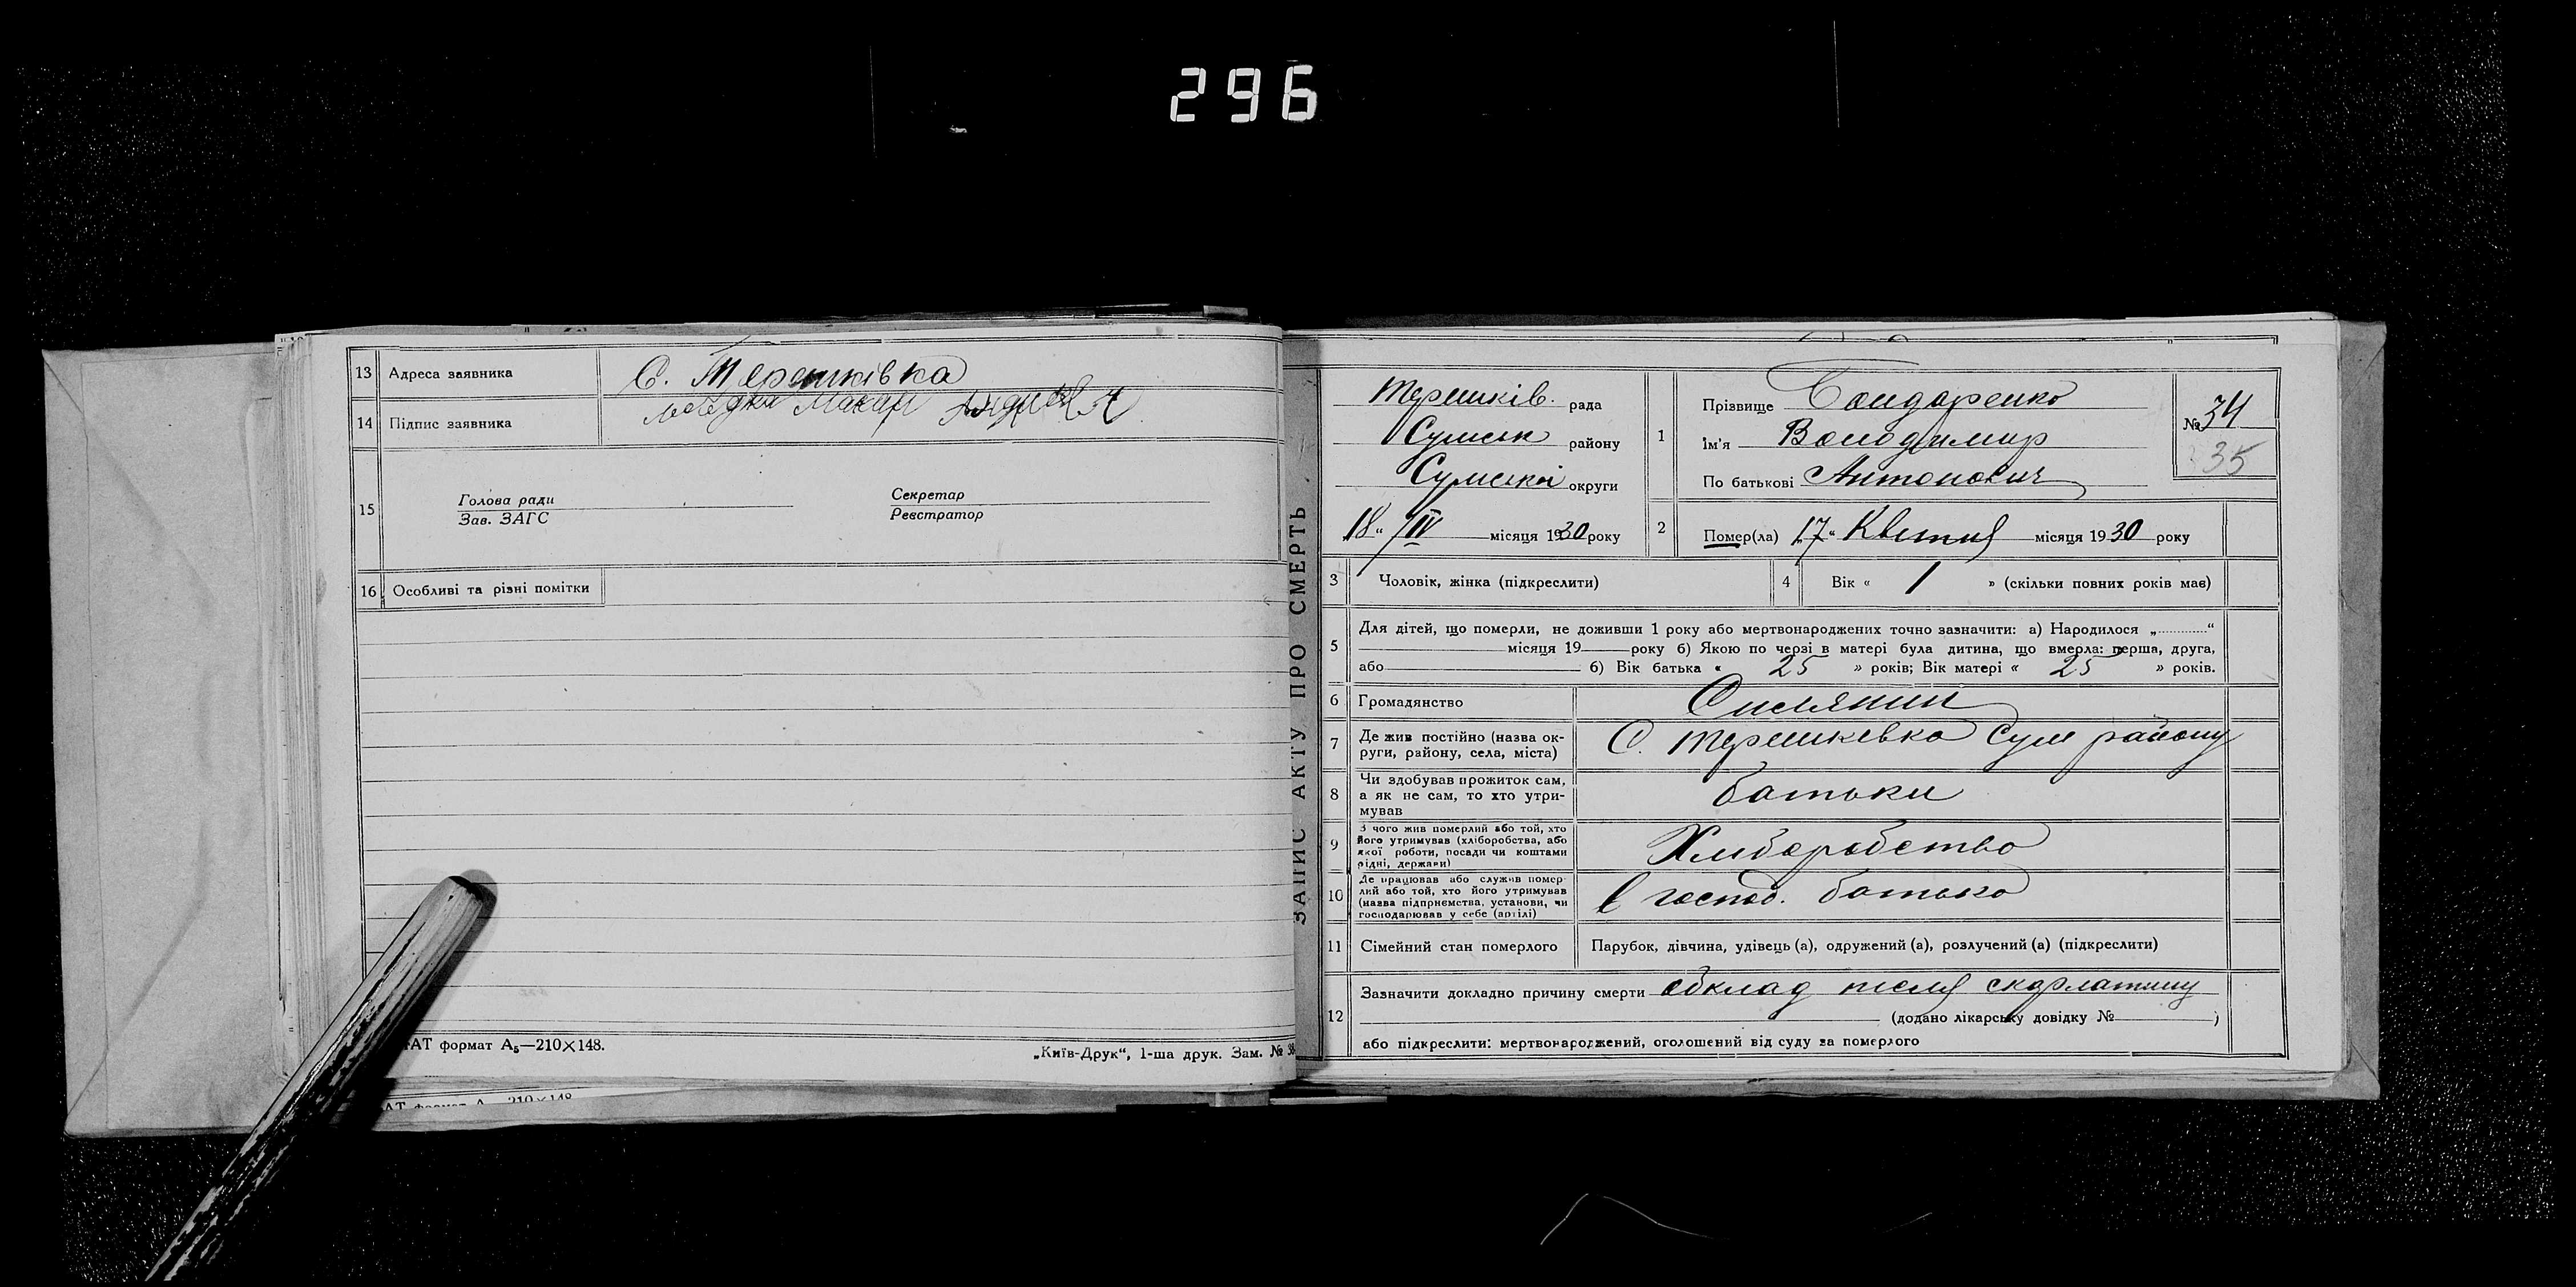 296
13 Адреса заявника С. Терешківка
14 Підпис заявника Макар
15 Голова ради Секретар
Зав. ЗАГС Реєстратор
16 Особливі та різні помітки
АТ формат А₅—210×148.
„Київ-Друк“, 1-ша друк. Зам. № 38
АТ формат А 210×148
ЗАПИС АКТУ ПРО СМЕРТЬ
Терешків. рада
Сумськ району
Сумської округи
„18“ IV місяця 1930 року
1 Прізвище Бондаренко
Ім'я Володимир
По батькові Антонович
№ 34
35
2 Помер(ла) „17“ Квітня місяця 1930 року
3 Чоловік, жінка (підкреслити)
4 Вік « 1 » (скільки повних років має)
5 Для дітей, що померли, не доживши 1 року або мертвонароджених точно зазначити: а) Народилося „............“
місяця 19 року б) Якою по черзі в матері була дитина, що вмерла: перша, друга,
або б) Вік батька « 25 » років; Вік матері « 25 » років.
6 Громадянство Силянин
7 Де жив постійно (назва ок-
руги, району, села, міста) С. Терешковка Сум району
8 Чи здобував прожиток сам,
а як не сам, то хто утри-
мував батьки
9 З чого жив померлий або той, хто
його утримував (хліборобства, або
якої роботи, посади чи коштами
рідні, держави) Хлиборобство
10 Де працював або служив помер-
лий або той, хто його утримував
(назва підприємства, установи, чи
господарював у себе (артілі) В господ. батька
11 Сімейний стан померлого Парубок, дівчина, удівець (а), одружений (а), розлучений (а) (підкреслити)
12 Зазначити докладно причину смерти обклад після скорлатини
(додано лікарську довідку № )
або підкреслити: мертвонароджений, оголошений від суду за померлого